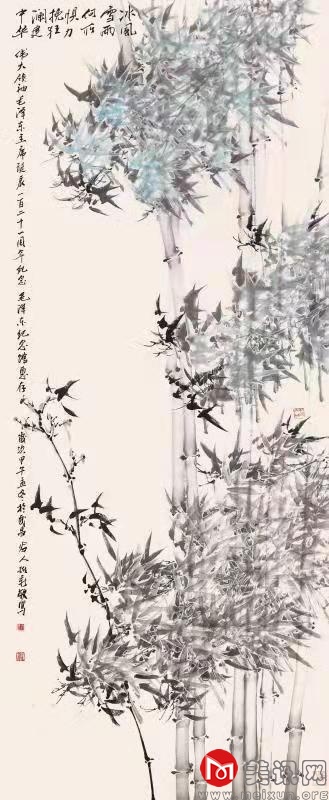 冰风
雪雨
何所
惧力
挽狂
澜建
中华
伟大领袖毛泽东主席诞辰一百二十一周年纪念 毛泽东纪念馆惠存 岁次甲午孟冬於武昌
美讯网
www.meixun.org